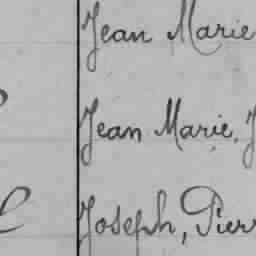 Jean Marie
Jean Marie. J
Joseph, Pierr